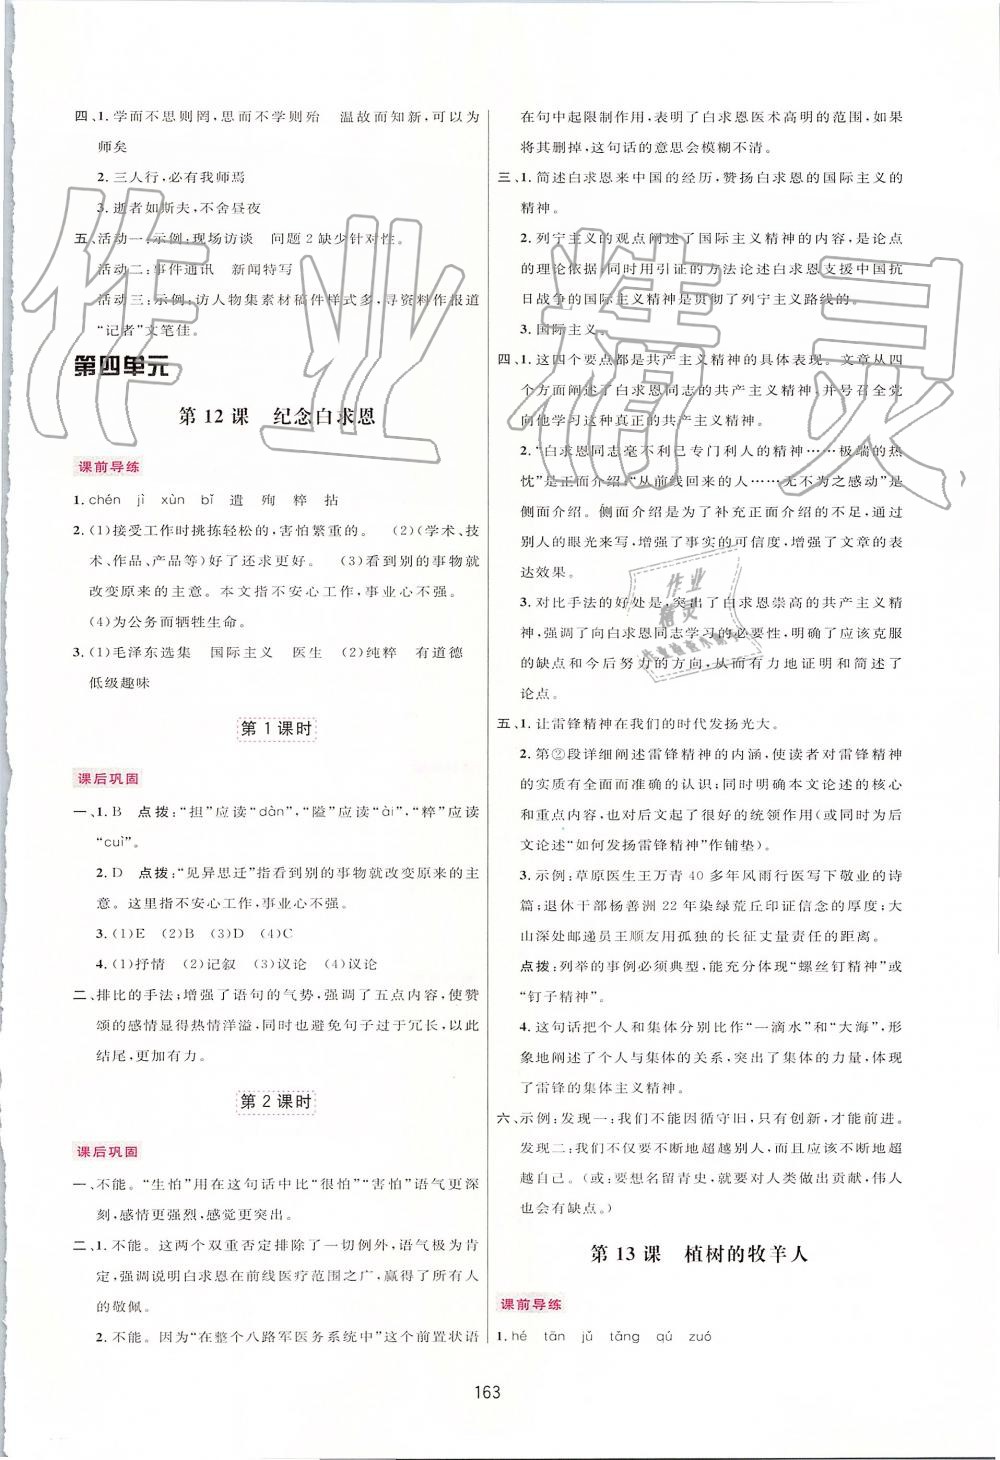 四、1. 学而不思则罔,思而不学则殆　温故而知新,可以为
师矣
2. 三人行,必有我师焉
3. 逝者如斯夫,不舍昼夜
五、活动一:示例:现场访谈　问题2缺少针对性。
活动二:事件通讯　新闻特写
活动三:示例:访人物集素材稿件样式多,寻资料作报道
“记者”文笔佳。
第四单元
第12课　纪念白求恩
课前导练
1. chén　jì　xùn　bǐ　遣　殉　粹　拈
2. (1)接受工作时挑拣轻松的,害怕繁重的。　(2)(学术、技
术、作品、产品等)好了还求更好。　(3)看到别的事物就
改变原来的主意。本文指不安心工作,事业心不强。
(4)为公务而牺牲生命。
3. (1)毛泽东选集　国际主义　医生　(2)纯粹　有道德
低级趣味
第1课时
课后巩固
一、1. B　点拨:“担”应读“dàn”,“隘”应读“ài”,“粹”应读
“cuì”。
2. D　点拨:“见异思迁”指看到别的事物就改变原来的主
意。这里指不安心工作,事业心不强。
3. (1)E　(2)B　(3)D　(4)C
4. (1)抒情　(2)记叙　(3)议论　(4)议论
二、排比的手法;增强了语句的气势,强调了五点内容,使赞
颂的感情显得热情洋溢,同时也避免句子过于冗长,以此
结尾,更加有力。
第2课时
课后巩固
一、不能。“生怕”用在这句话中比“很怕”“害怕”语气更深
刻,感情更强烈,感觉更突出。
二、1. 不能。这两个双重否定排除了一切例外,语气极为肯
定,强调说明白求恩在前线医疗范围之广,赢得了所有人
的敬佩。
2. 不能。因为“在整个八路军医务系统中”这个前置状语
在句中起限制作用,表明了白求恩医术高明的范围,如果
将其删掉,这句话的意思会模糊不清。
三、1. 简述白求恩来中国的经历,赞扬白求恩的国际主义的
精神。
2. 列宁主义的观点阐述了国际主义精神的内容,是论点
的理论依据,同时用引证的方法论述白求恩支援中国抗
日战争的国际主义精神是贯彻了列宁主义路线的。
3. 国际主义。
四、1. 这四个要点都是共产主义精神的具体表现。文章从四
个方面阐述了白求恩同志的共产主义精神,并号召全党
向他学习这种真正的共产主义精神。
2. “白求恩同志毫不利己专门利人的精神……极端的热
忱”是正面介绍;“从前线回来的人……无不为之感动”是
侧面介绍。侧面介绍是为了补充正面介绍的不足,通过
别人的眼光来写,增强了事实的可信度,增强了文章的表
达效果。
3. 对比手法的好处是,突出了白求恩崇高的共产主义精
神,强调了向白求恩同志学习的必要性,明确了应该克服
的缺点和今后努力的方向,从而有力地证明和阐述了
论点。
五、1. 让雷锋精神在我们的时代发扬光大。
2. 第②段详细阐述雷锋精神的内涵,使读者对雷锋精神
的实质有全面而准确的认识;同时明确本文论述的核心
和重点内容,也对后文起了很好的统领作用(或同时为后
文论述“如何发扬雷锋精神”作铺垫)。
3. 示例:草原医生王万青40多年风雨行医写下敬业的诗
篇;退休干部杨善洲22年染绿荒丘印证信念的厚度;大
山深处邮递员王顺友用孤独的长征丈量责任的距离。
点拨:列举的事例必须典型,能充分体现“螺丝钉精神”或
“钉子精神”。
4. 这句话把个人和集体分别比作“一滴水”和“大海”,形
象地阐述了个人与集体的关系,突出了集体的力量,体现
了雷锋的集体主义精神。
六、示例:发现一:我们不能因循守旧,只有创新,才能前进。
发现二:我们不仅要不断地超越别人,而且应该不断地超
越自己。(或:要想名留青史,就要对人类做出贡献,伟人
也会有缺点。)
第13课　植树的牧羊人
课前导练
1. hé　tān　jǔ　tǎng　qú　zuó
163
作业精灵
作业
精灵